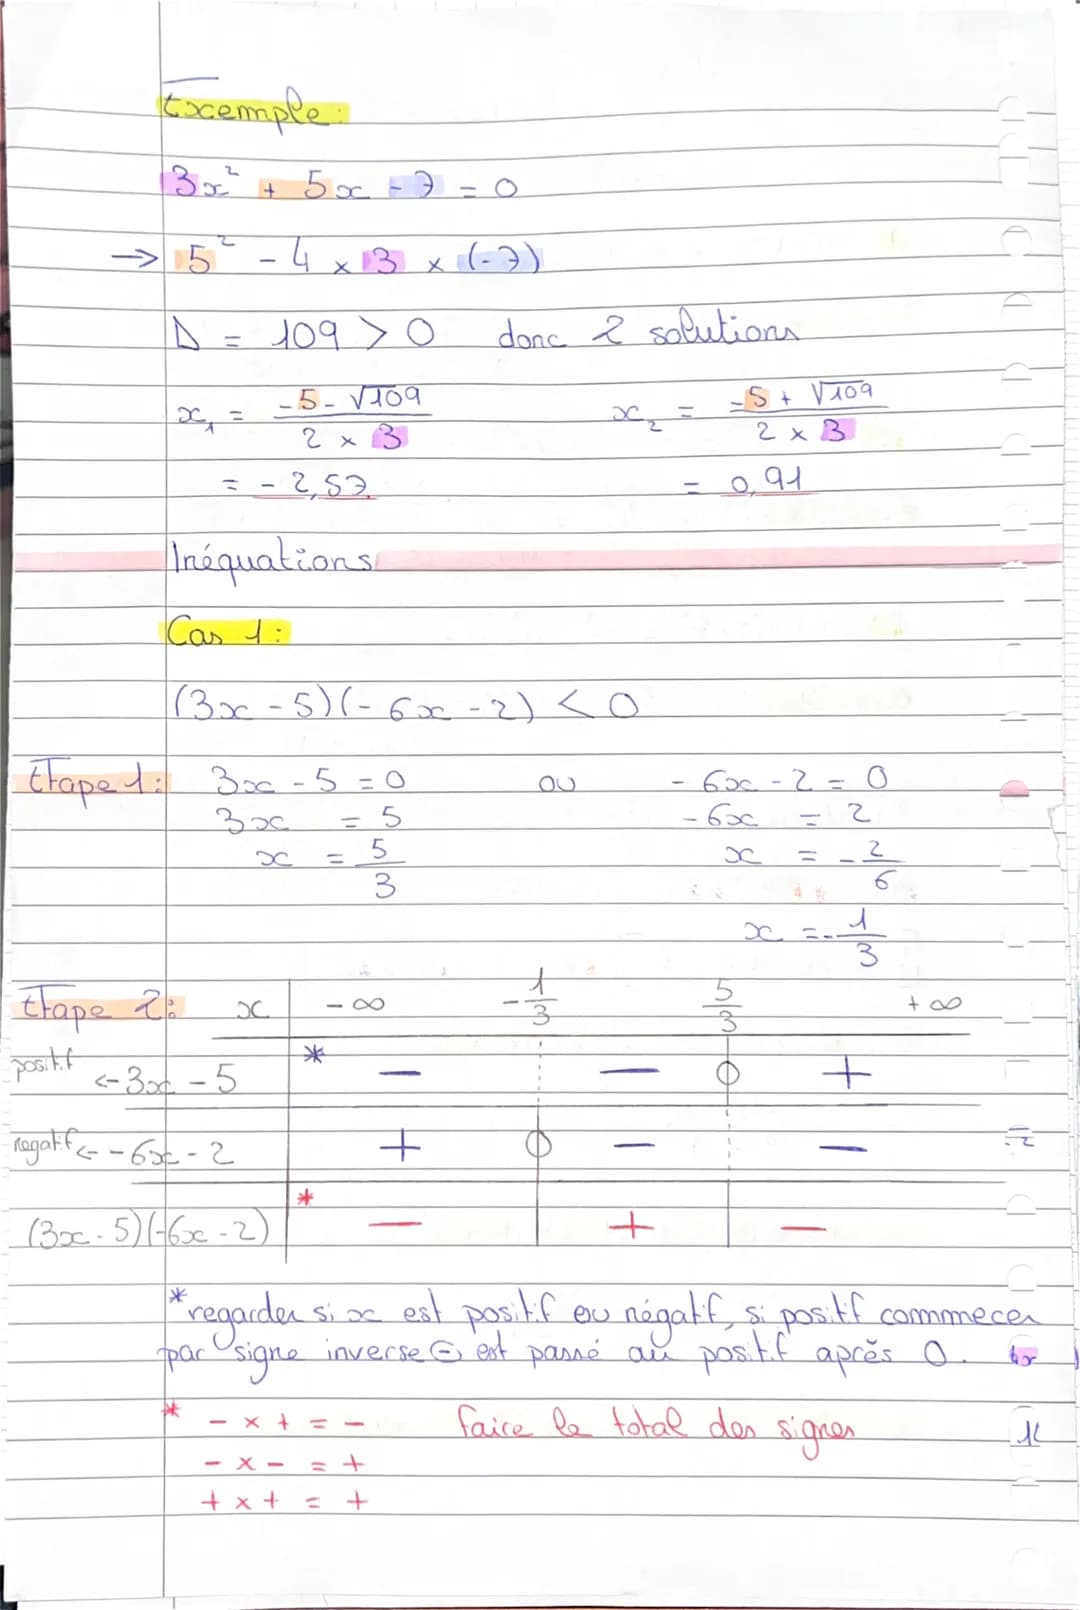 Exemple:
3x² + 5x - 7 = 0
→ 5² - 4 × 3 × (-7)
Δ = 109 > 0 donc 2 solutions
x₁ = (-5 - √109) / (2 × 3) x₂ = (-5 + √109) / (2 × 3)
= - 2,57 = 0,91
Inéquations
Cas 1:
(3x - 5)(- 6x - 2) < 0
Etape 1: 3x - 5 = 0 ou - 6x - 2 = 0
3x = 5 - 6x = 2
x = 5/3 x = - 2/6
x = - 1/3
Etape 2: x - ∞ - 1/3 5/3 + ∞
positif ← 3x - 5 * - - 0 +
negatif ← - 6x - 2 + 0 - -
(3x - 5)(-6x - 2) * - + -
* regarder si x est positif ou négatif, si positif commecer
par signe inverse ⊖ est passé au positif après 0.
* - × + = - faire le total des signes
- × - = +
+ × + = +